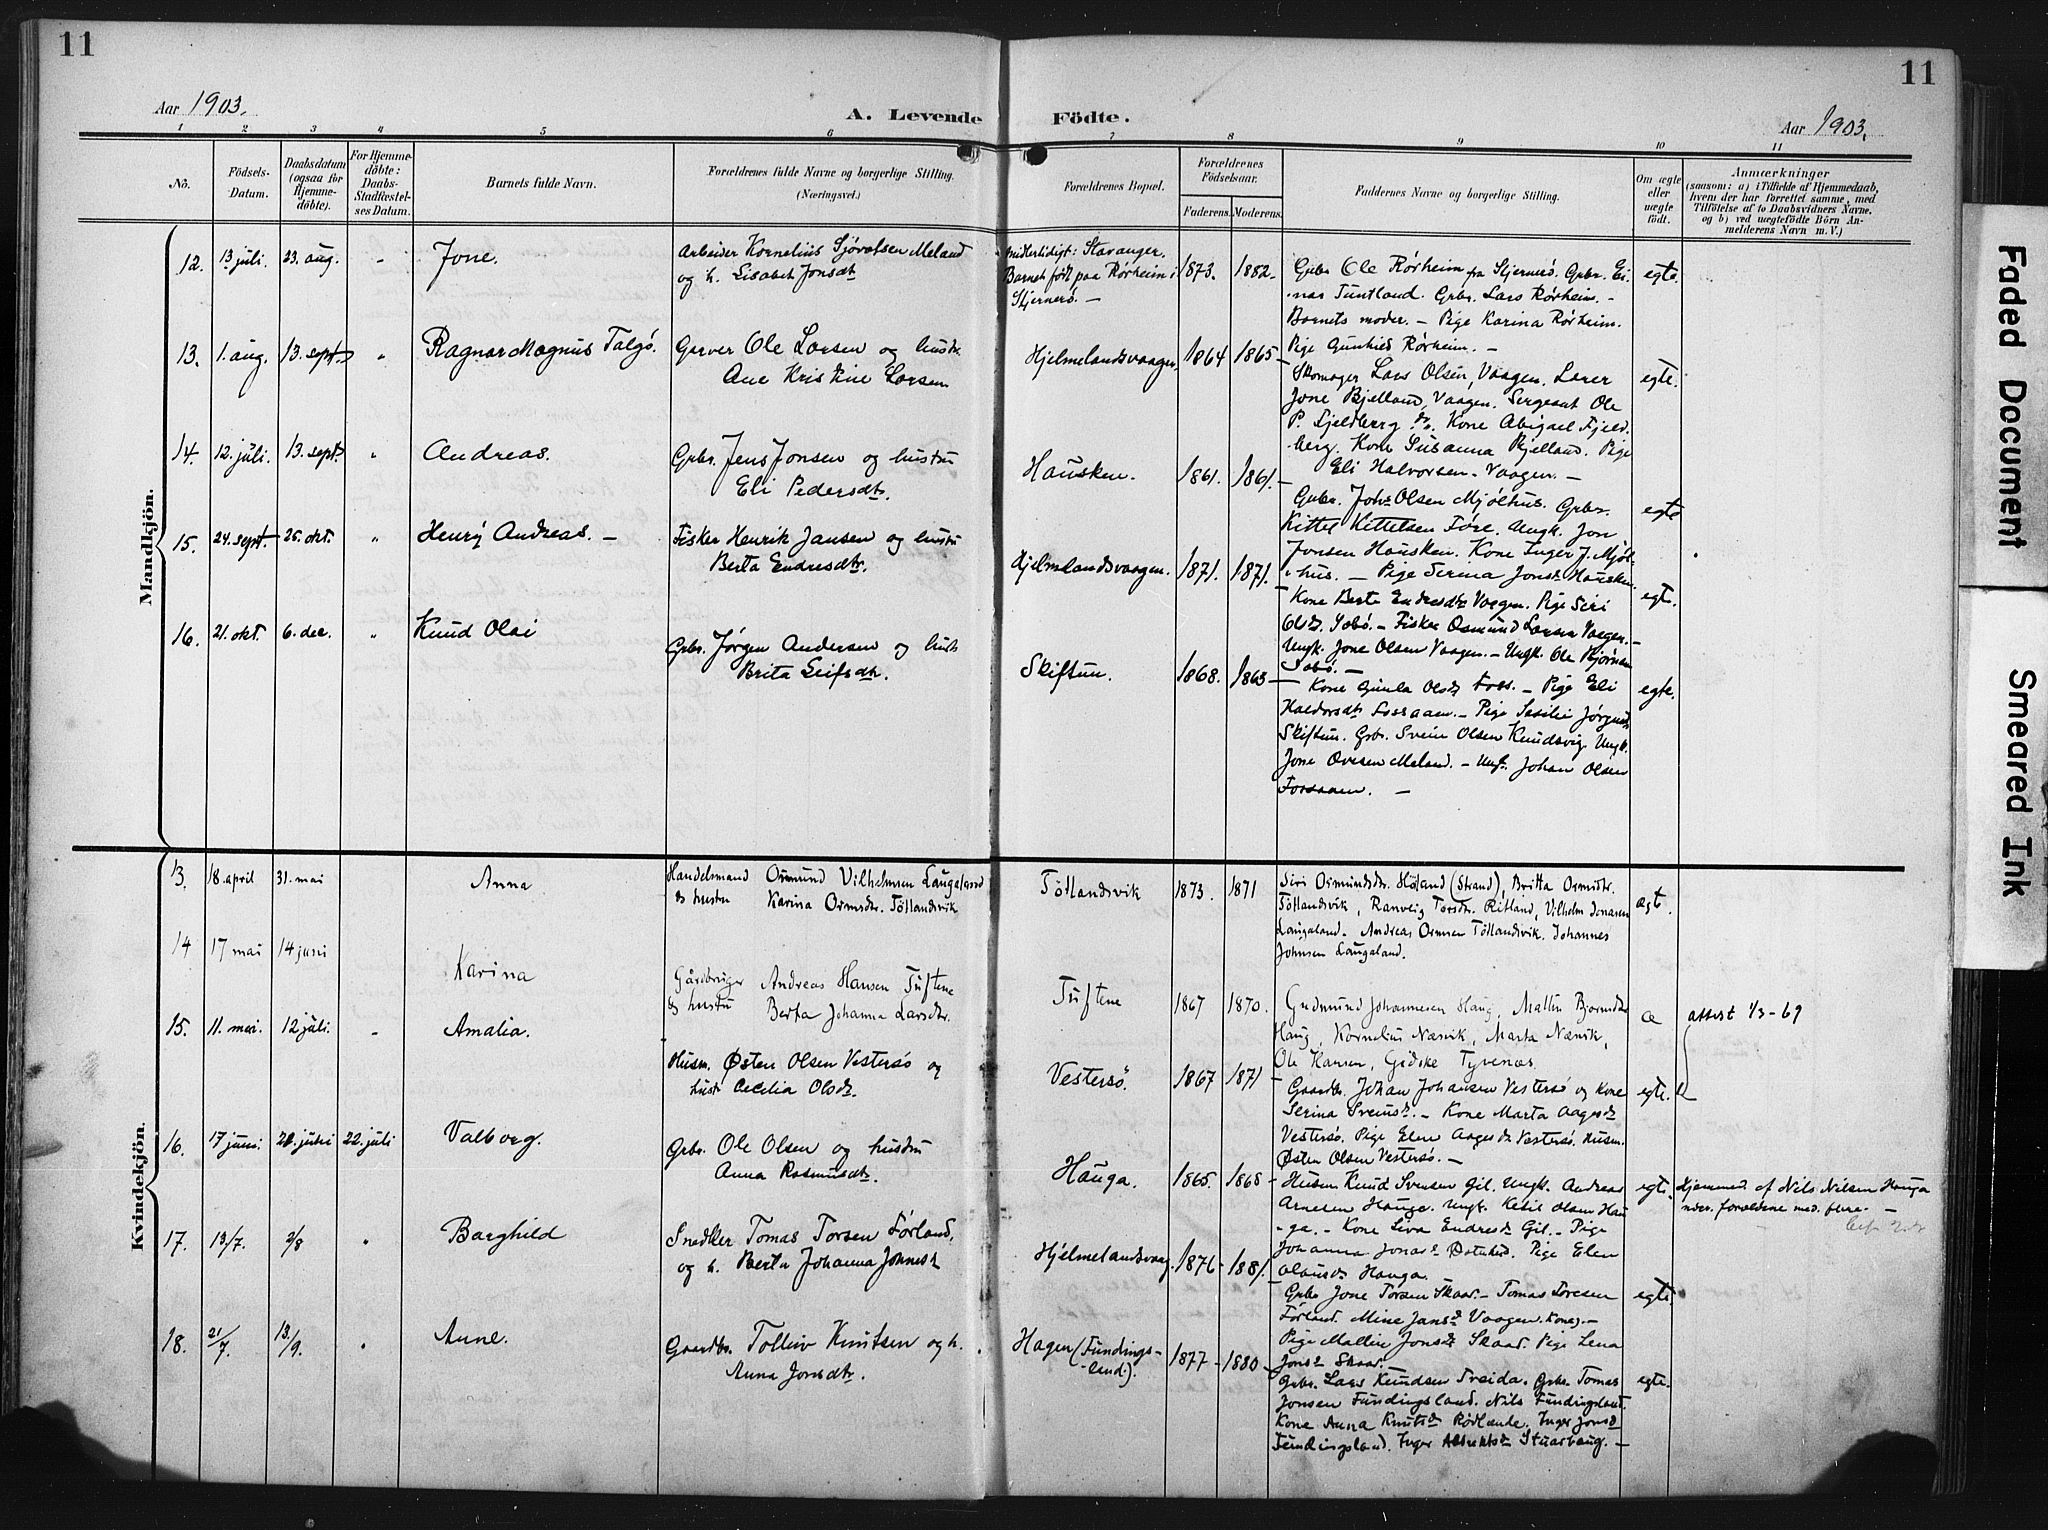 11
11
Aar 1903.
A. Levende Födte.
Aar 1903.
1 2 3 4 5 6 7 8 9 10 11
No.
Födsels-
Datum.
Daabsdatum
(ogsaa for
Hjemme-
döbte).
For Hjemme-
döbte:
Daabs-
Stadfæstel-
ses Datum.
Barnets fulde Navn.
Forældrenes fulde Navne og borgerlige Stilling.
(Næringsvei.)
Forældrenes Bopæl.
Forældrenes
Födselsaar.
Faderens. Moderens.
Faddernes Navne og borgerlige Stilling.
Om ægte
eller
uægte
födt.
Anmærkninger
(saasom: a) i Tilfælde af Hjemmedaab,
hvem der har forrettet samme, med
Tilföielse af to Daabsvidners Navne.
og b) ved uægtefödte Börn An-
melderens Navn m. V.)
Mandkjön.
12. 13 juli. 23. aug. - Jone.
Arbeider Kornelius Sjövatsen Meland
og h. Lisabet Jonsdt
Midlertidigt: Stavanger.
Barnet född paa Rörheim i
Stjernerö. -
1873. 1882.
Grbr Ole Rörheim fra Stjernerö. Grbr. Ei-
nar Tuntland. Grbr. Lars Rörheim. -
Barnets moder. - Pige Karina Rörheim.
Pige Gunhild Rörheim. -
egte.
13. 1. aug. 13. sept. " Ragnar Magnus Talgö.
Garver Ole Larsen og hustr.
Ane Kristine Larsen
Hjelmelandsvaagen. 1864 1865
Skomager Lars Olsen, Vaagen. Lærer
Jone Bjelland, Vaagen. Sergeant Ole
P. Fjeldberg do. Kone Abigael Fjeld-
berg. Kone Susanna Bjelland. Pige
Eli Halvorsen. Vaagen. -
egte.
14. 12. juli. 13. sept. " Andreas.
Grbr. Jens Jonsen og hustru
Eli Pedersdt.
Hausken. 1861. 1861.
Grbr. Johs Olsen Mjölhus. Grbr.
Kittel Kittelsen Töre. Ungk. Jon
Jonsen Hausken. Kone Inger J. Mjöl-
hus. - Pige Serina Jonsd. Hausken.
egte
15. 24. sept. 25. okt. " Henrij Andreas. -
Fisker Henrik Jansen og hustru
Berta Endresdtr.
Hjelmelandsvaagen. 1871. 1871.
Kone Berte Endresdt Vaagen. Pige Siri
Olsd. Sobö. - Fisker Osmund Larsen Vaagen. -
Ungk. Jone Olsen Vaagen. - Ungk. Ole Bjørnsen
Sobö. -
egte.
16. 21. okt. 6. dec. " Knud Olai
Grbr. Jørgen Andersen og hust
Brita Leifsdt.
Skiftun. 1868. 1863
Kone Gunla Olsd Foss. - Pige Eli
Haldorsdt Fossaaen. - Pige Sesilie Jørgensd
Skiftun. Grbr. Svein Olsen Knudsvig. Ungk.
Jone Ovesen Meland. - Ungk. Johan Olsen
Forsaaen. -
egte.
Kvindekjön.
13. 18. april 31. mai Anna
Handelsmand Ormund Vilhelmsen Laugaland
& hustru Karina Ormsdtr. Töllandsvik
Töllandsvik 1873. 1871
Siri Ormundsdr. Höland (Strand), Britta Ormsdtr.
Töllandsvik, Ranveig Torsdr. Ritland, Vilhelm Jonasen
Laugaland. Andreas Ormsen Töllandsvik. Johannes
Johnsen Laugaland.
ægt.
14 17 mai 14 juni Karina
Gårdbruger Andreas Hansen Tuftene
& hustru Berta Johanna Larsdtr.
Tuftene 1867 1870.
Gudmund Johannesen Haug, Mallin Bjornsdtr
Haug, Kornelius Næsvik, Marta Næsvik,
Ole Hansen, Gidske Tyvenæs
æ
attest 1/3-69
15. 11. mai. 12 juli. - Amalia.
Husm. Østen Olsen Vestersö og
hust Cecilia Olsdt.
Vestersö. 1867 1871
Gaardbr. Johan Johansen Vestersö og Kone
Serina Svensd. - Kone Marta Aagesd
Vestersö. Pige Elen Aagesdt Vestersö. Husm.
Østen Olsen Vestersö. -
egte.
16. 17 juni. 21. juni 22. juli Valborg.
Grbr. Ole Olsen og hustru
Anna Rasmusdt.
Hauga. 1865 1868
Husm Knud Svensen Gil. Ungk. Andreas
Arnesen Hauge. Ungk. Ketil Olsen Hau-
ga. - Kone Liva Endresdt Gil. - Pige
Johanna Jonasd Østuhus. Pige Elen
Olausd. Hauga.
egte.
Hjemmed. af Nils Nilsen Hauga
nder. forældrene med flere -
17. 13/7. 2/8 " Borghild
Snedker Tomas Torsen Förland,
og h. Berta Johanna Johnesdt
Hjelmelandsvaag. 1876 1881.
Grbr Jone Torsen Skaar. - Tomas Toresen
Förland. Mine Jansd Vaagen. Kone). -
Pige Mallin Jonsd Skaar. Pige Lena
Jonsd Skaar.
egte.
18. 21/7. 13/9. " Anne.
Gaardbr. Tolleiv Knutsen og h.
Anna Jonsdtr.
Hagen (Fundings-
land.). 1877 1880
Grbr. Lars Knudsen Treida. Grbr. Tomas
Jonsen Fundingsland. Nils Fundingsland.
Kone Anna Knutsd Rödlende. Inger Jonsd
Fundingsland. Inger Albrektsd Stuarhaug. -
egte.
Faded Document
Smeared Ink